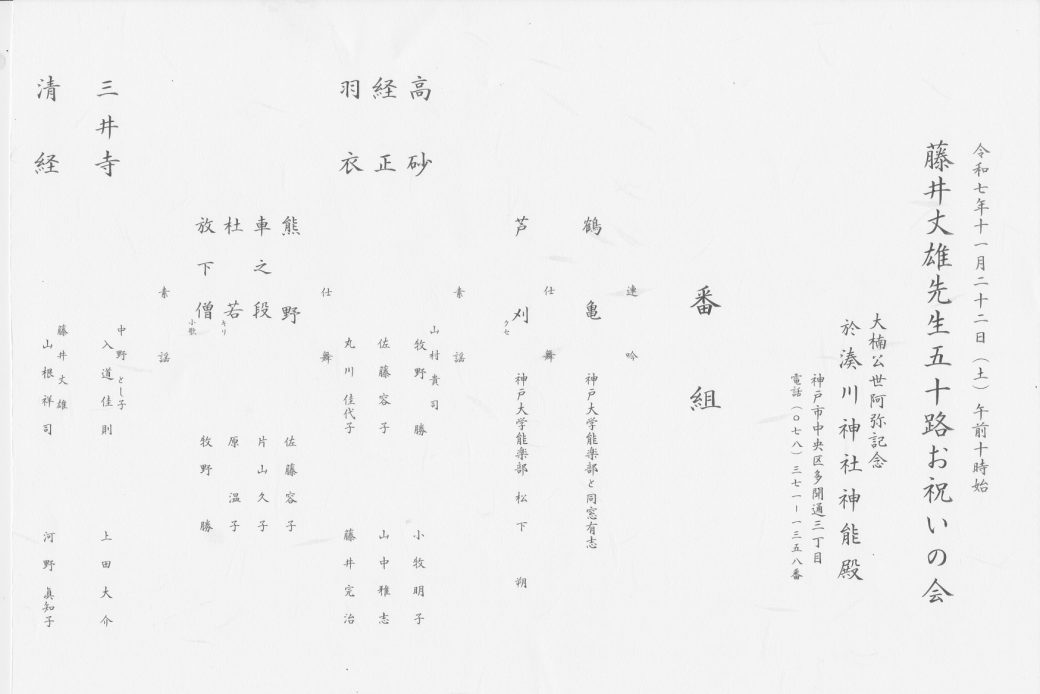 令和七年十一月二十二日（土）午前十時始
藤井丈雄先生五十路お祝いの会
大楠公世阿弥記念
於 湊川神社神能殿
神戸市中央区多聞通三丁目
電話（〇七八）三七一ー一三五八番
番組
連吟
鶴亀 神戸大学能楽部と同窓有志
仕舞
芦刈 クセ 神戸大学能楽部 松下 朔
素謡
高砂 山村貴司 牧野勝 小牧明子
経正 佐藤容子 山中雅志
羽衣 丸川佳代子 藤井完治
仕舞
熊野 佐藤容子
車之段 片山久子
杜若 キリ 原温子
放下僧 小歌 牧野勝
素謡
三井寺 中野とし子 入道佳則 上田大介
清経 藤井丈雄 山根祥司 河野眞知子